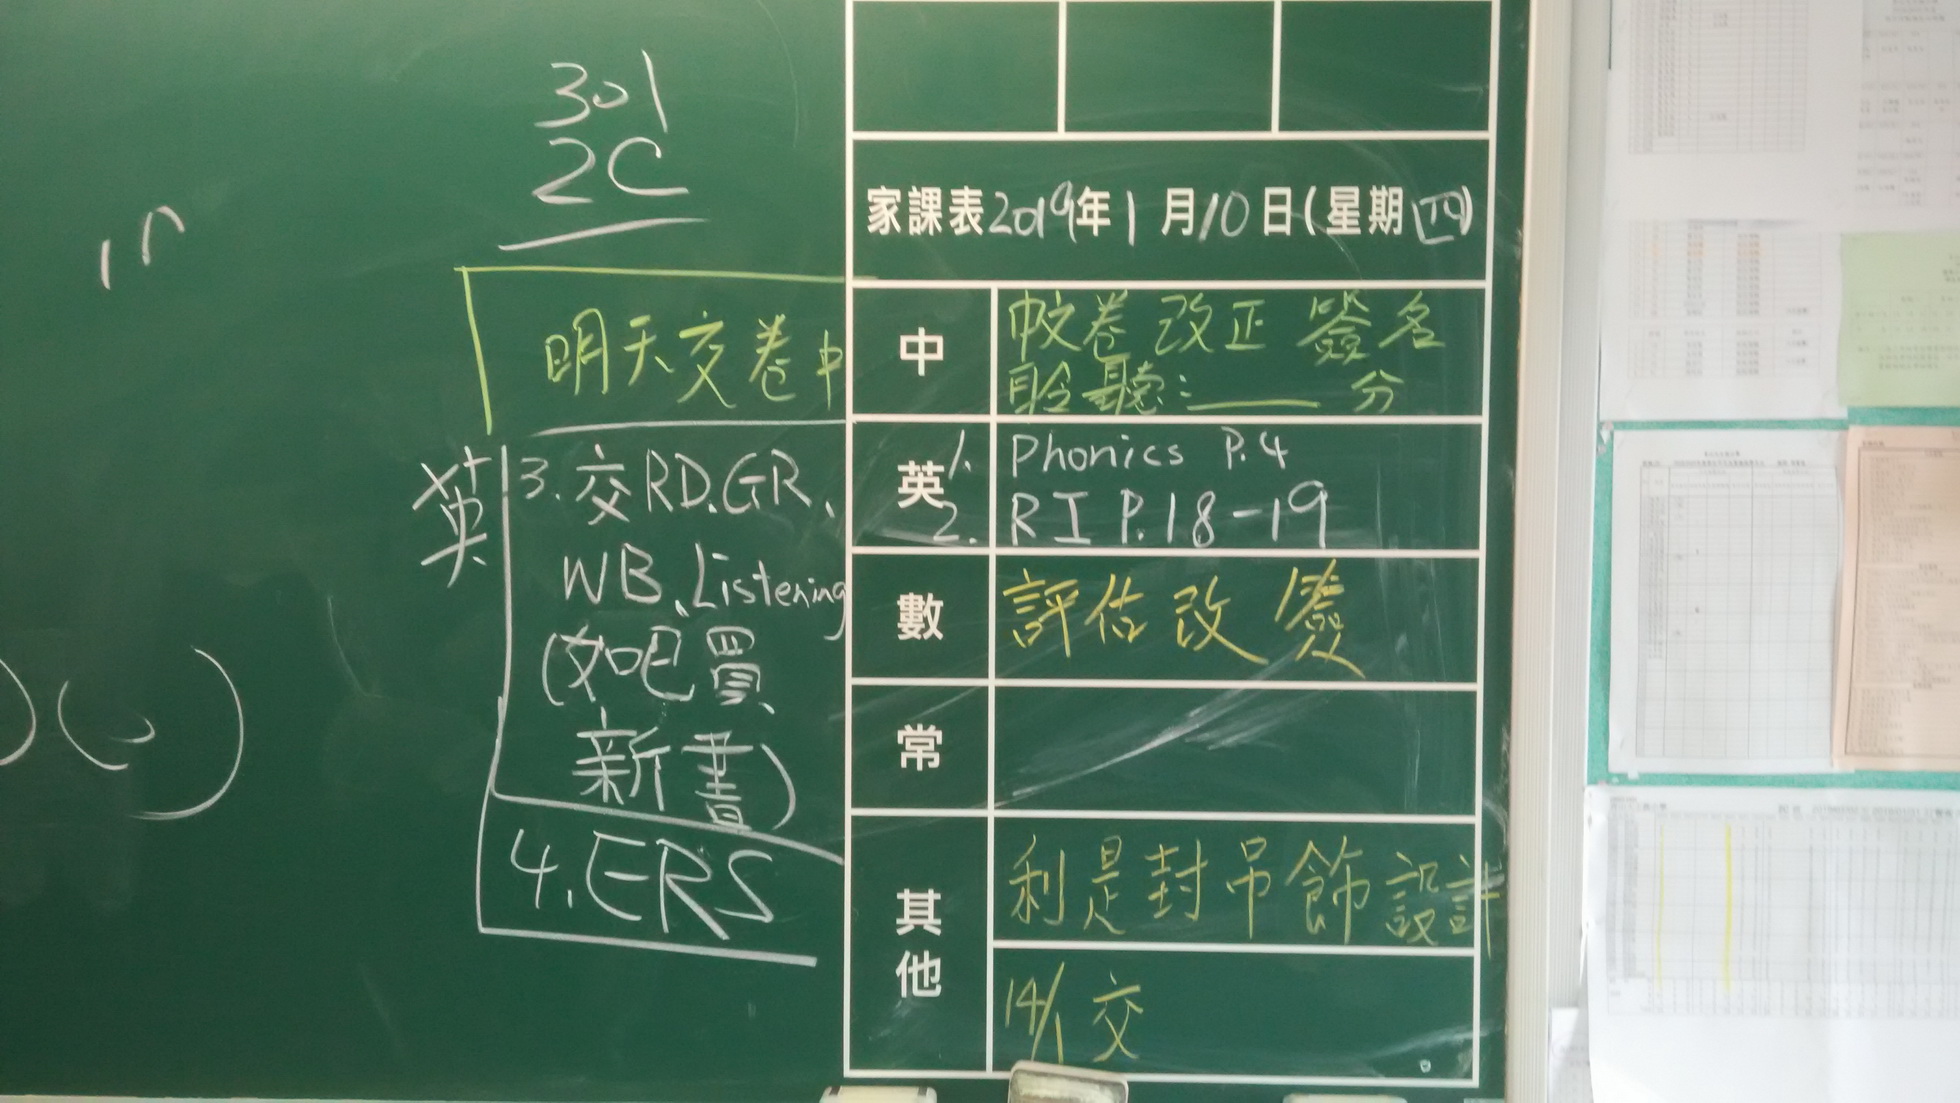 301
2C
家課表2019年1月10日(星期四)
明天交卷中
中
中文卷 改正 簽名
聆聽:____分
英
1. Phonics P.4
2. RI P.18-19
英
3. 交RD、GR、
WB、Listening
買
新書)
4. ERS
數
評估改簽
常
其他
利是封吊飾設計
14/1交